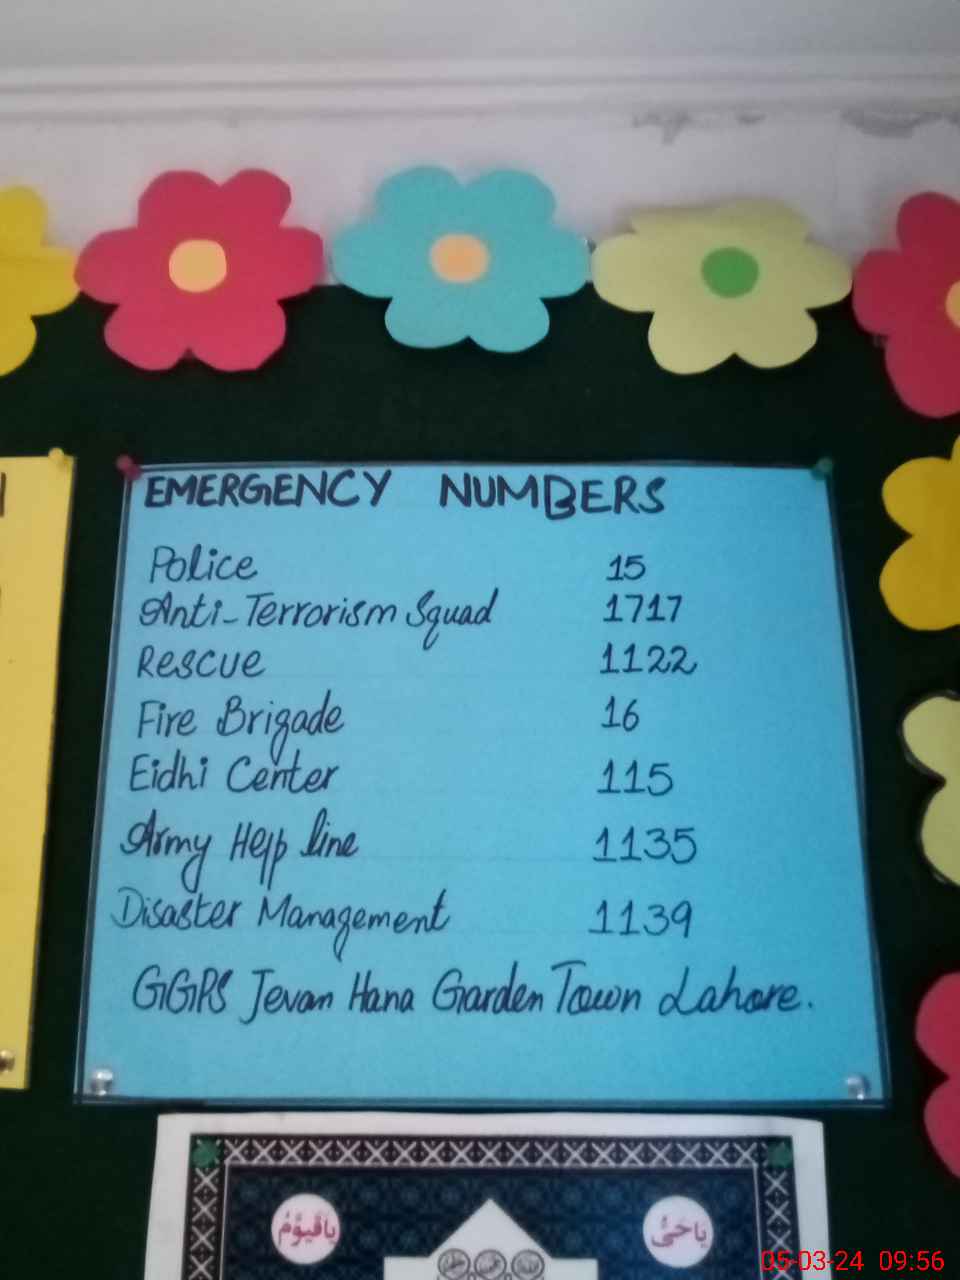 EMERGENCY NUMBERS
Police 15
Anti-Terrorism Squad 1717
Rescue 1122
Fire Brigade 16
Eidhi Center 115
Army Help line 1135
Disaster Management 1139
GGPS Jevan Hana Garden Town Lahore.
يَاقَيُّوْمُ يَاحَىُّ
05-03-24 09:56